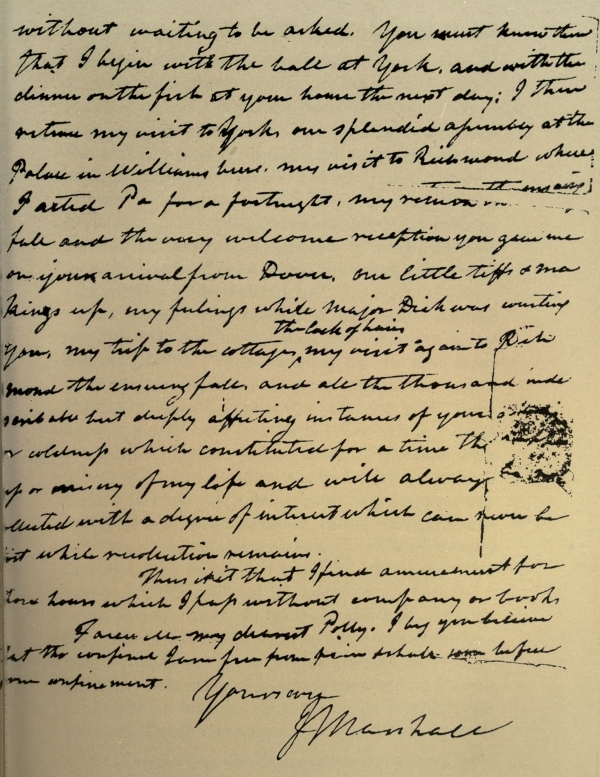 without waiting to be asked. You must know then
that I begin with the ball at York, and with the
dinner on the fish at your house the next day; I then
retrace my visit to York, our splendid assembly at the
Palace in Williamsburg, my visit to Richmond where
I acted Pa for a fortnight, my return the ensuing
fall and the very welcome reception you gave me
on your arrival from Dover, our little tiffs & ma
kings up, my feelings while Major Dick was courting
the lock of hair
you, my trip to the cottage, my visit again to Rich
mond the ensuing fall, and all the thousand inde
scribable but deeply affecting instances of your
or coldness which constituted for a time the
or misery of my life and will always
ollected with a degree of interest which can never be
ost while recollection remains.
Thus is it that I find amusement for
those hours which I pass without company or books
Farewell my dearest Polly. I beg you believe
at tho confined I am free from pain & shall soon be free
rom confinement.
Yours ever
J Marshall